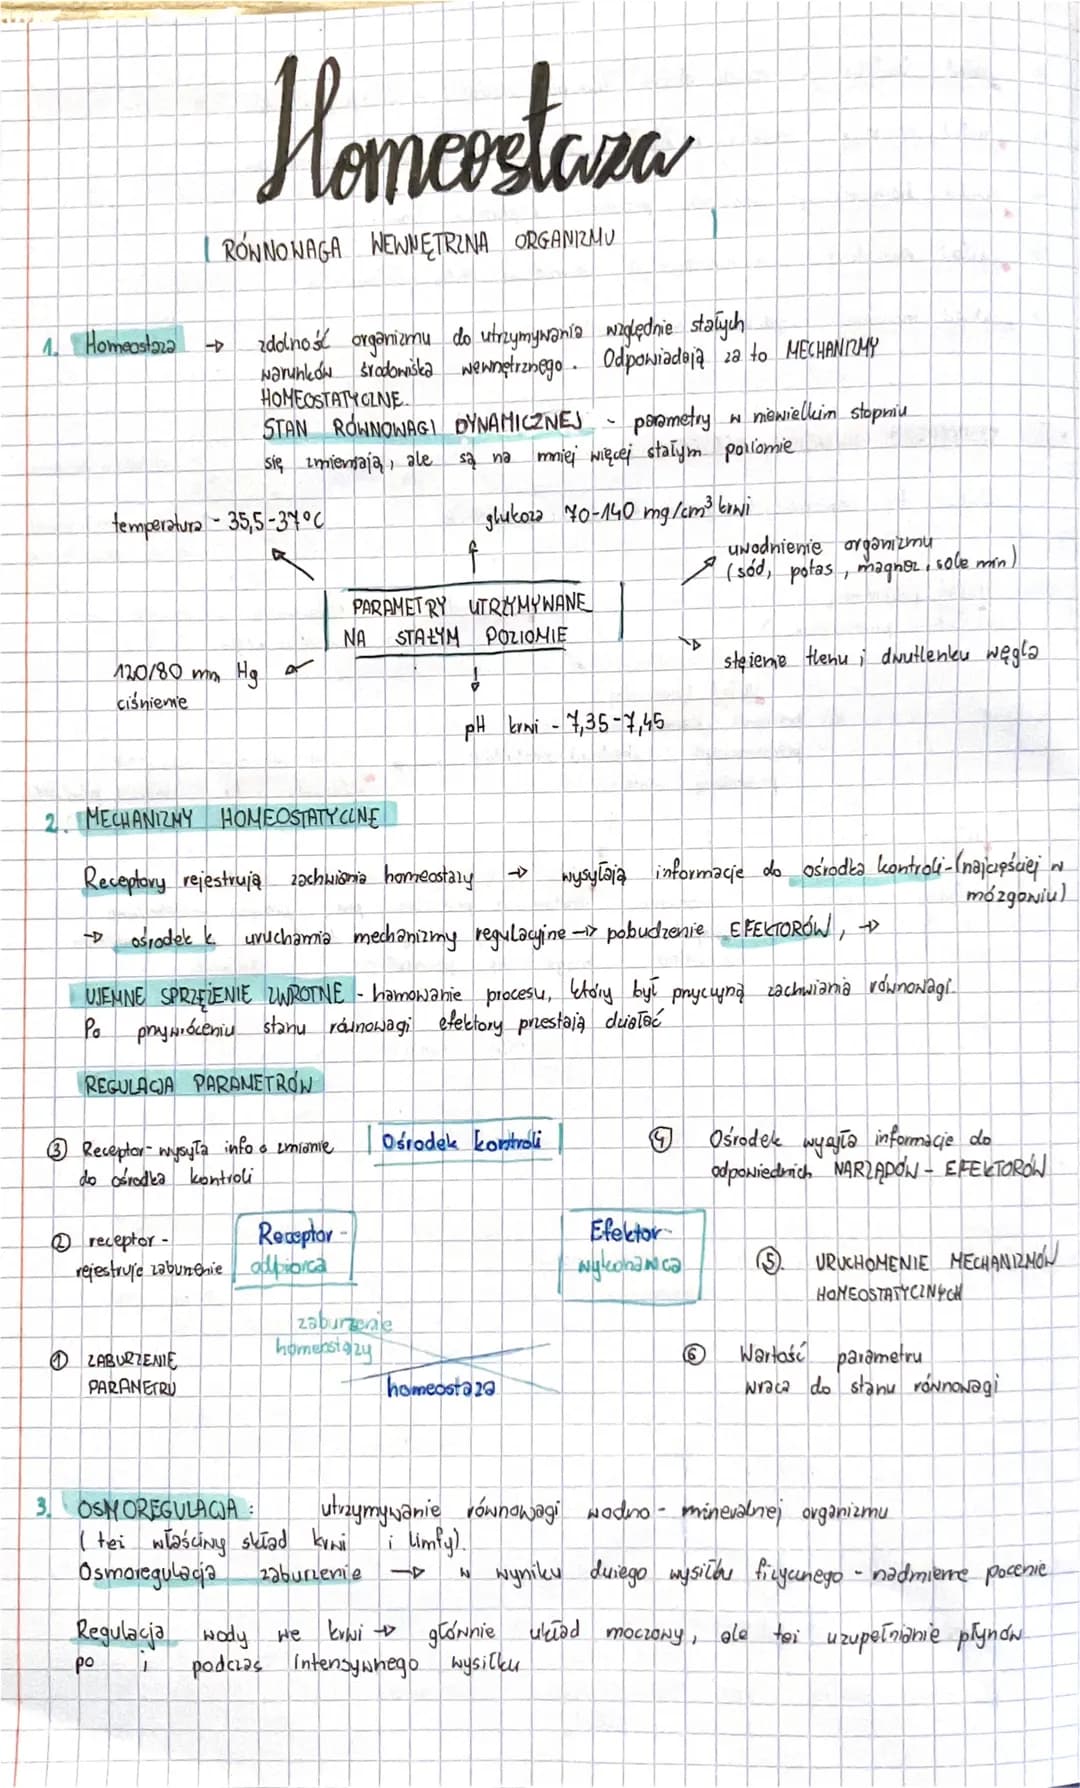 Homeostaza
RÓWNOWAGA WEWNĘTRZNA ORGANIZMU
1. Homeostaza → zdolność organizmu do utrzymywania względnie stałych
warunków środowiska wewnętrznego. Odpowiadają za to MECHANIZMY
HOMEOSTATYCZNE.
STAN RÓWNOWAGI DYNAMICZNEJ - parametry w niewielkim stopniu
się zmieniają, ale są na mniej więcej stałym poziomie
temperatura - 35,5-37°C
glukoza 70-140 mg/cm³ krwi
uwodnienie organizmu
(sód, potas, magnez, sole min)
PARAMETRY UTRZYMYWANE
NA STAŁYM POZIOMIE
stężenie tlenu i dwutlenku węgla
120/80 mm Hg
ciśnienie
pH krwi - 7,35-7,45
2. MECHANIZMY HOMEOSTATYCZNE
Receptory rejestrują zachwiania homeostazy → wysyłają informacje do ośrodka kontroli-(najczęściej w
mózgowiu)
→ ośrodek k. uruchamia mechanizmy regulacyjne → pobudzenie EFEKTORÓW, →
UJEMNE SPRZĘŻENIE ZWROTNE - hamowanie procesu, który był przyczyną zachwiania równowagi.
Po przywróceniu stanu równowagi efektory przestają działać
REGULACJA PARAMETRÓW
③ Receptor- wysyła info o zmianie
do ośrodka kontroli
Ośrodek kontroli
④ Ośrodek wysyła informacje do
odpowiednich NARZĄDÓW - EFEKTORÓW
② receptor -
rejestruje zaburzenie
Receptor -
odbiorca
Efektor-
wykonawca
⑤. URUCHOMIENIE MECHANIZMÓW
HOMEOSTATYCZNYCH
zaburzenie
homeostazy
① ZABURZENIE
PARAMETRU
homeostaza
⑥ Wartość parametru
wraca do stanu równowagi
3. OSMOREGULACJA: utrzymywanie równowagi wodno - mineralnej organizmu
(też właściwy skład krwi i limfy).
Osmoregulacja zaburzenie → w wyniku dużego wysiłku fizycznego - nadmierne pocenie
Regulacja wody we krwi → głównie układ moczowy, ale też uzupełnianie płynów
po i podczas intensywnego wysiłku